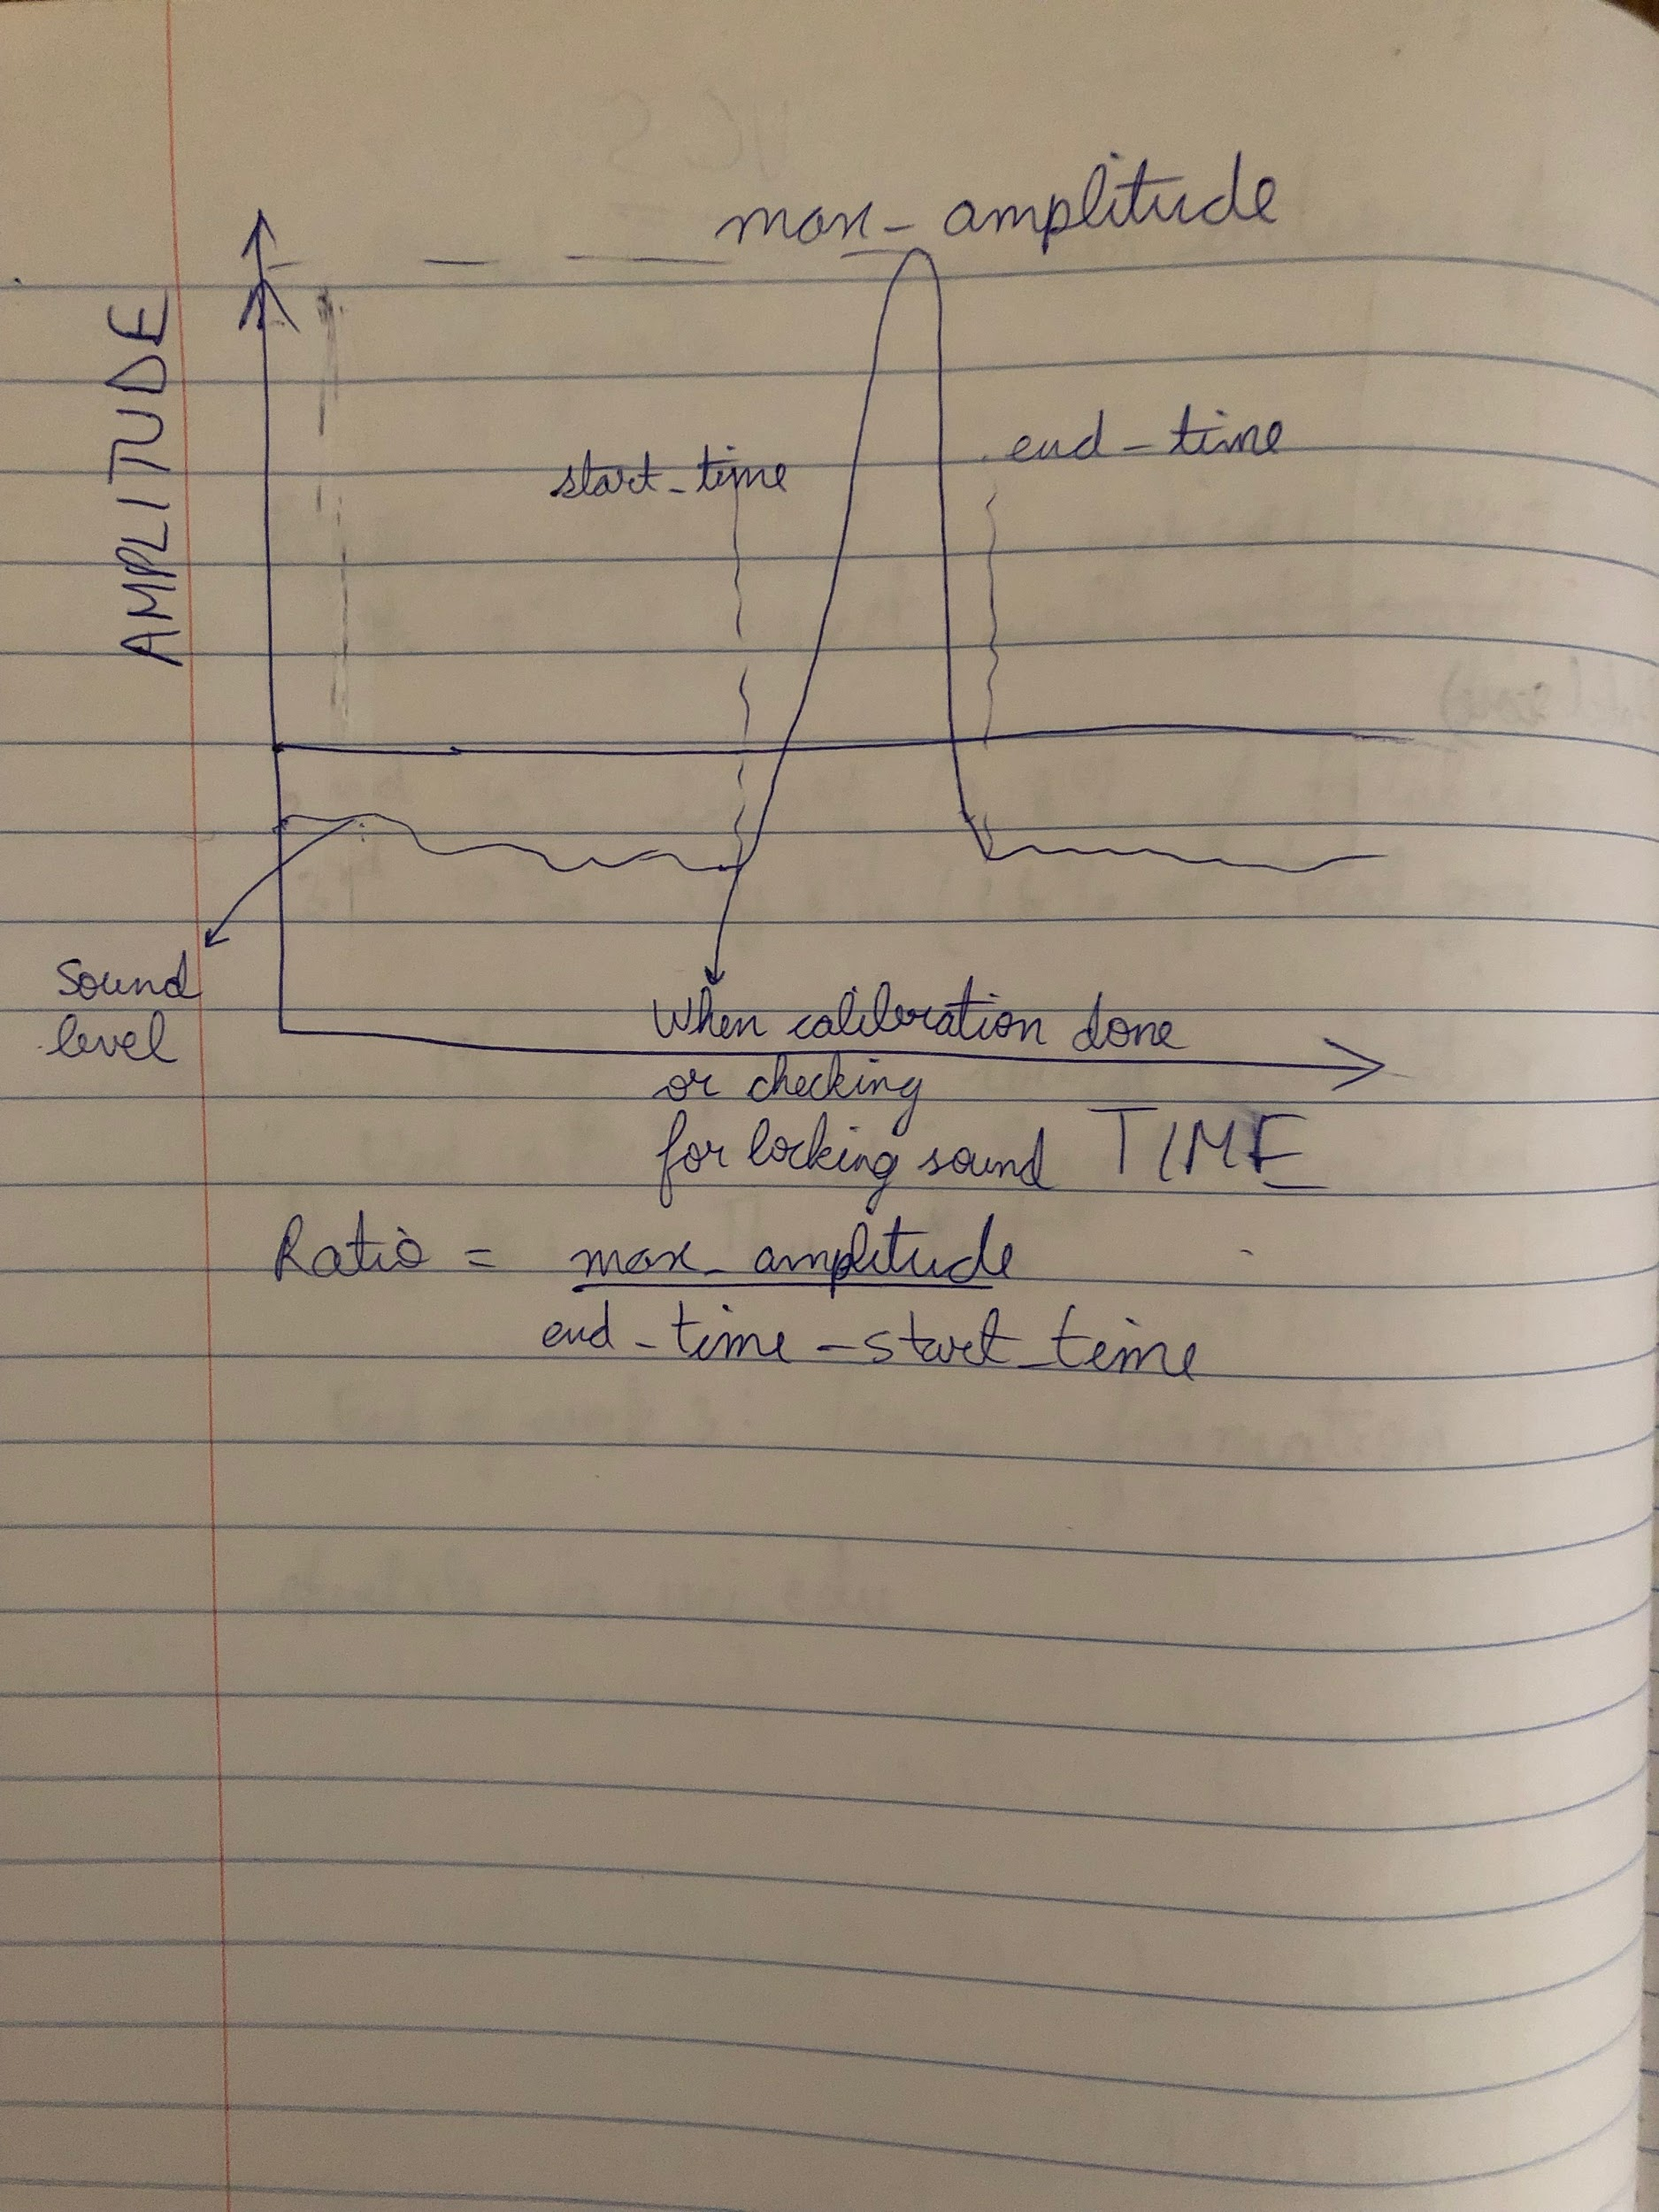 max_amplitude
AMPLITUDE
start_time
end_time
Sound
level
When calibration done
or checking
for locking sound
TIME
Ratio = max_amplitude
end_time - start_time